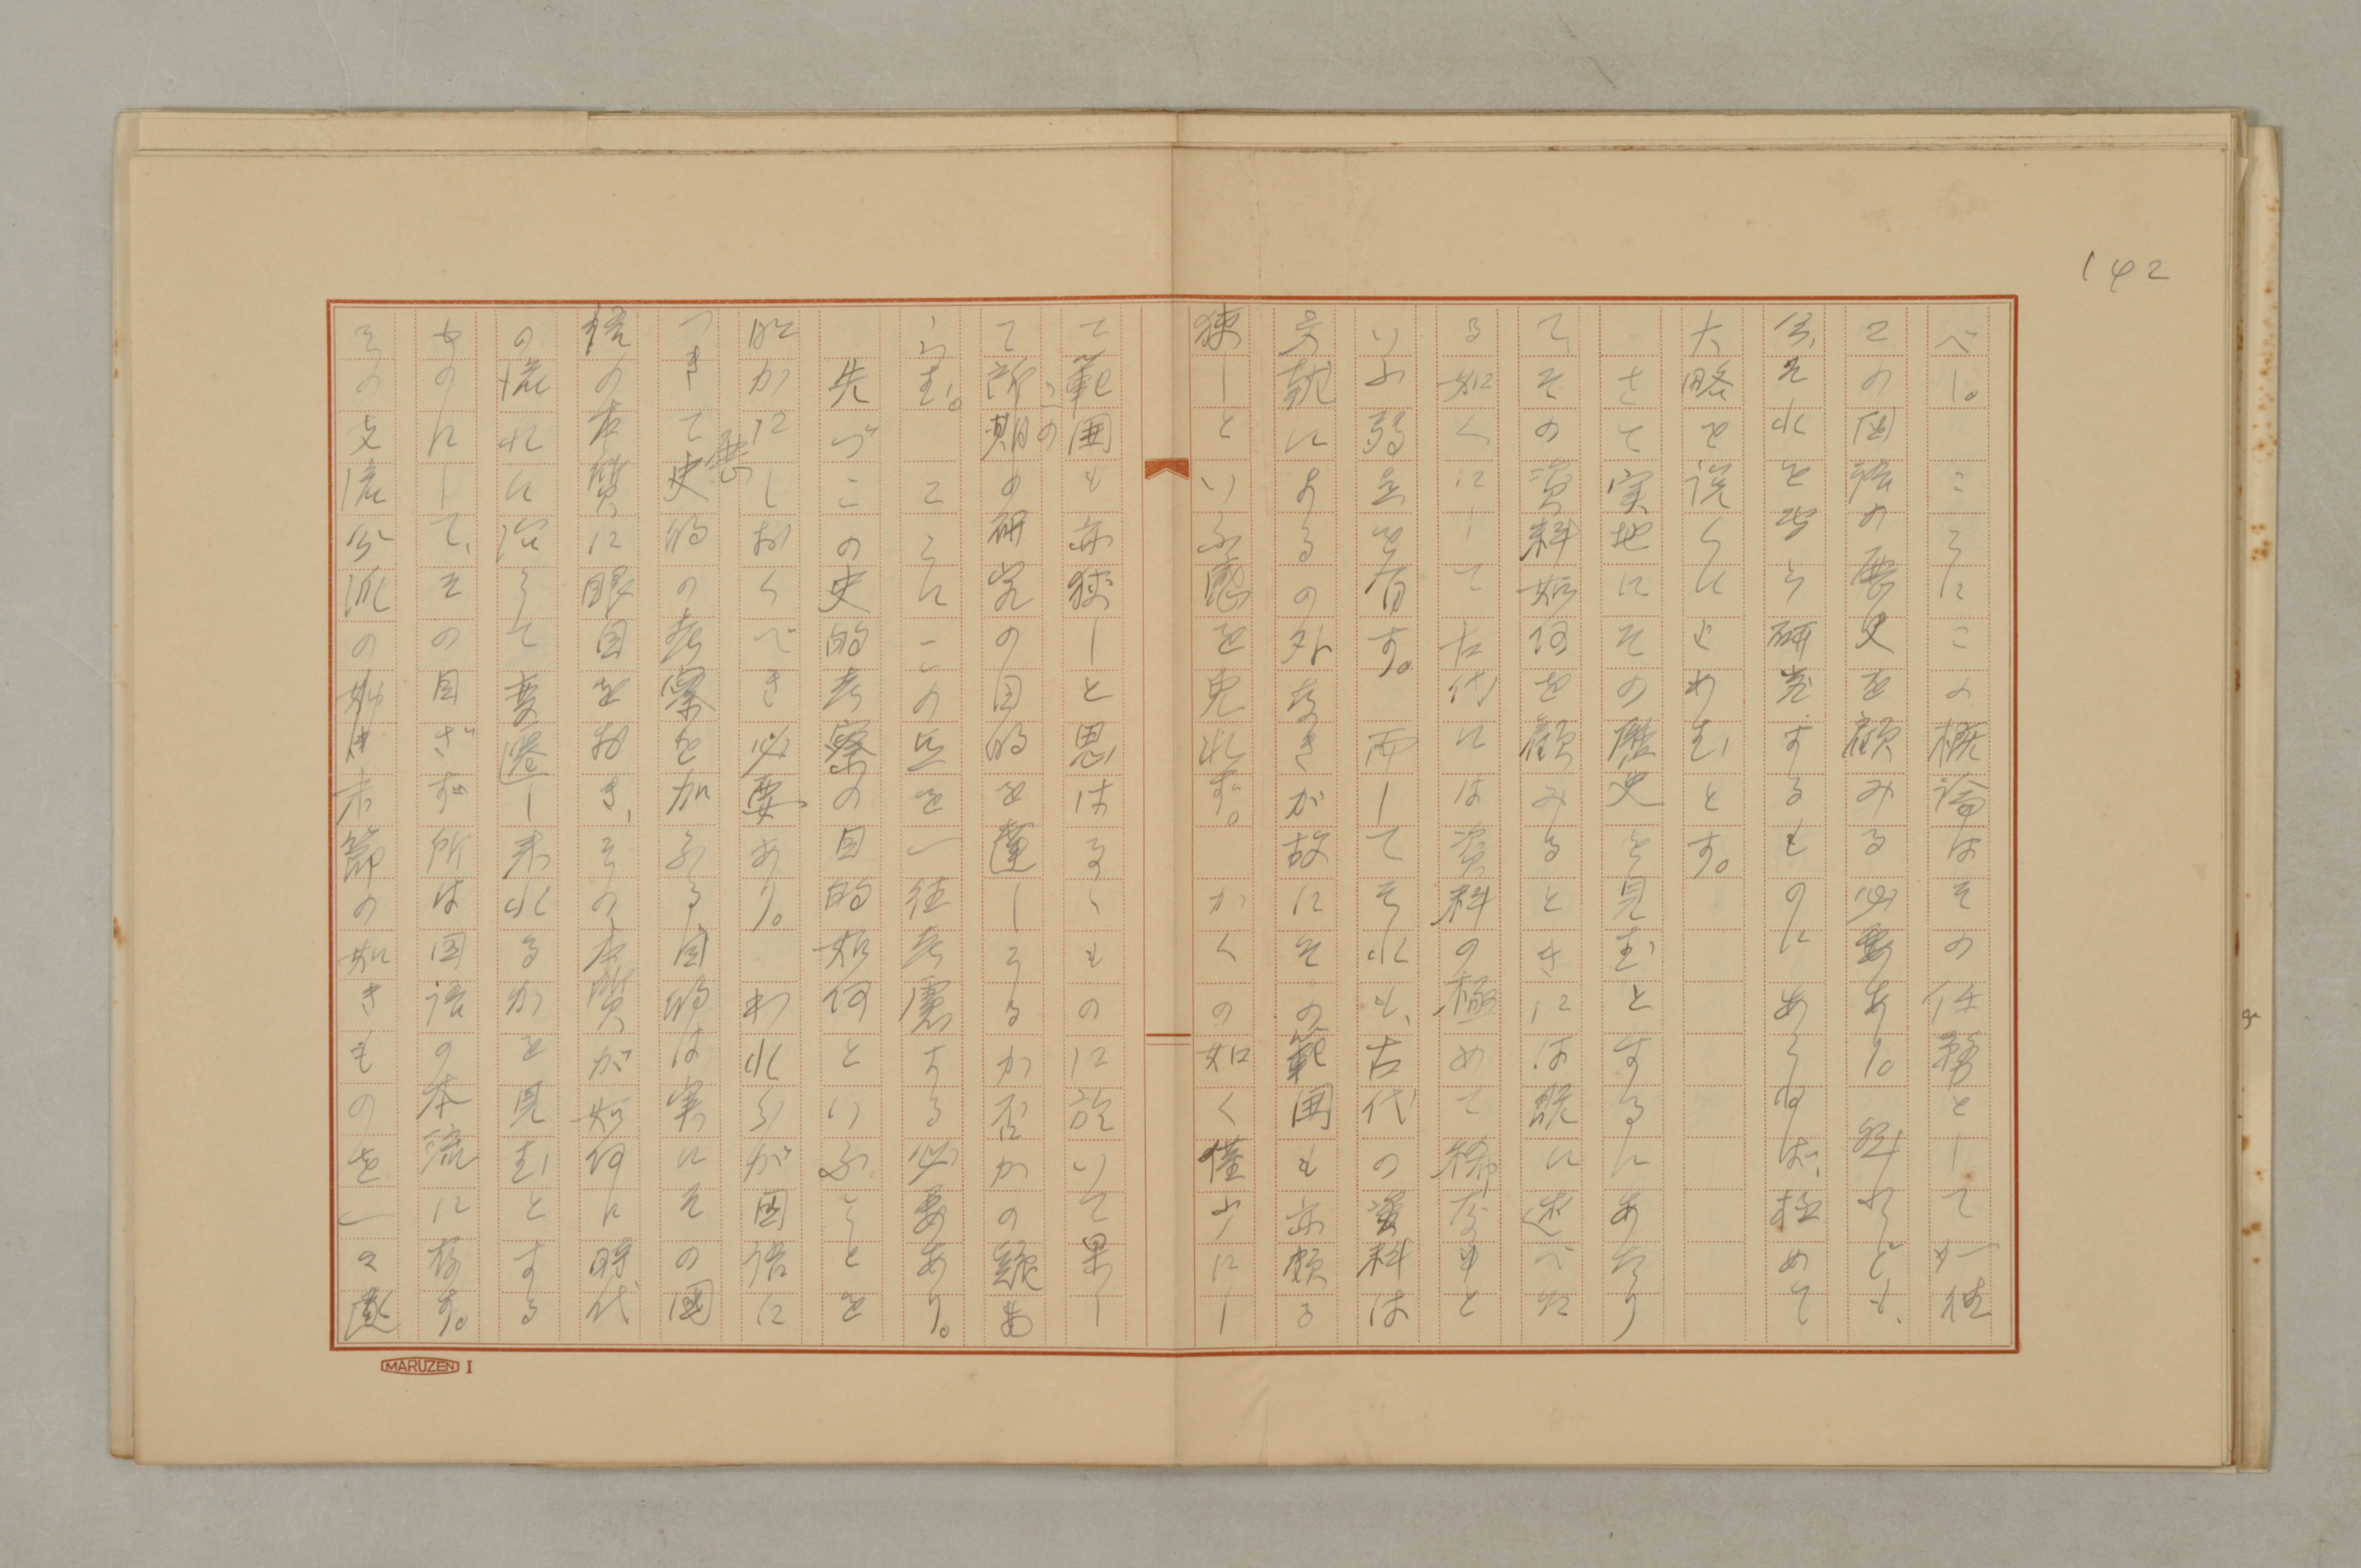 142
べし。こゝにこの概論はその任務として一往
この国語の歴史を顧みる必要あり。然れども、
今、それを専ら研究するものにあらねば、極めて
大略を説くにとどめむとす。
さて実地にその歴史を見むとするにあたり
て、その資料如何を顧みるときには既に述べた
る如くにして古代には資料の極めて稀なりと
いふ弱点を有す。而してそれも、古代の資料は
文献によるの外なきが故にその範囲も亦頗る
狭しといふ感を免れず。かくの如く僅少にし
て範囲も亦狭しと思はるゝものに於いて果し
てこの所期の研究の目的を達しうるか否かの疑も
らむ。こゝにこの点を一往考慮する必要あり。
先づこの史的考察の目的如何といふことを
明かにしおくべき必要あり。われらが国語に
つきて歴史的の考察を加ふる目的は実にその国
語の本質に眼目をおき、その本質が如何に時代
の流れに沿うて変遷し来れるかを見むとする
ものにして、その目ざす所は国語の本流に存す。
その支流分派の如き末節の如きものを一々
MARUZEN I